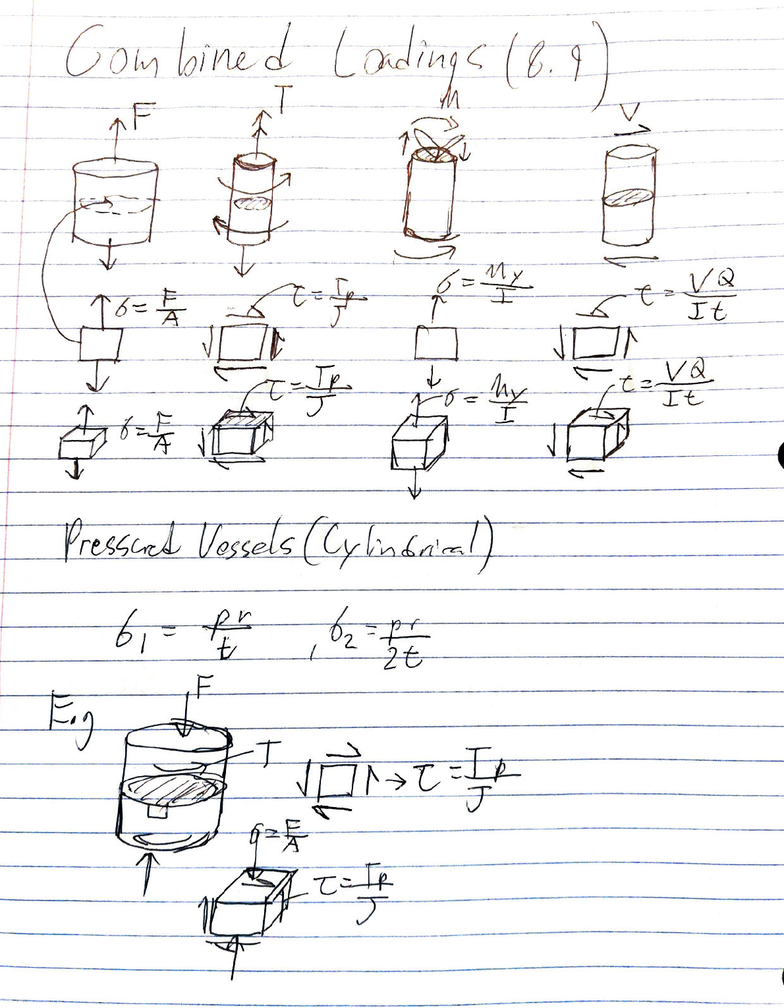 Combined Loadings (8.9)
F T M V
σ = F/A τ = Tρ/J σ = My/I τ = VQ/It
σ = F/A τ = Tρ/J σ = My/I τ = VQ/It
Pressured Vessels (Cylindrical)
σ₁ = pr/t , σ₂ = pr/2t
E.g F
T → τ = Tρ/J
σ = F/A
τ = Tρ/J